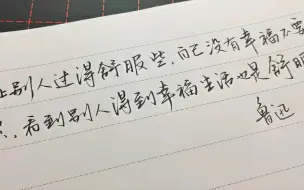 别人过得舒服些，自己没有幸福不要
，看到别人得到幸福生活也是舒服
鲁迅